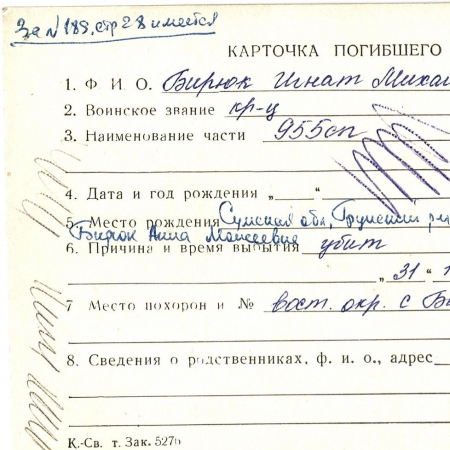 За N 185, стр 28 имеется
КАРТОЧКА ПОГИБШЕГО
1. Ф. И. О. Бирюк Игнат Михай
2. Воинское звание кр-ц
3. Наименование части 955сп
4. Дата и год рождения „ “
5. Место рождения Сумская обл, Грунский
Бирюк Анна Моисеевна
6. Причина и время выбытия убит
„ 31 “
7 Место похорон и № вост. окр. с
8. Сведения о родственниках, ф. и. о., адрес
К.-Св. т. Зак. 527б